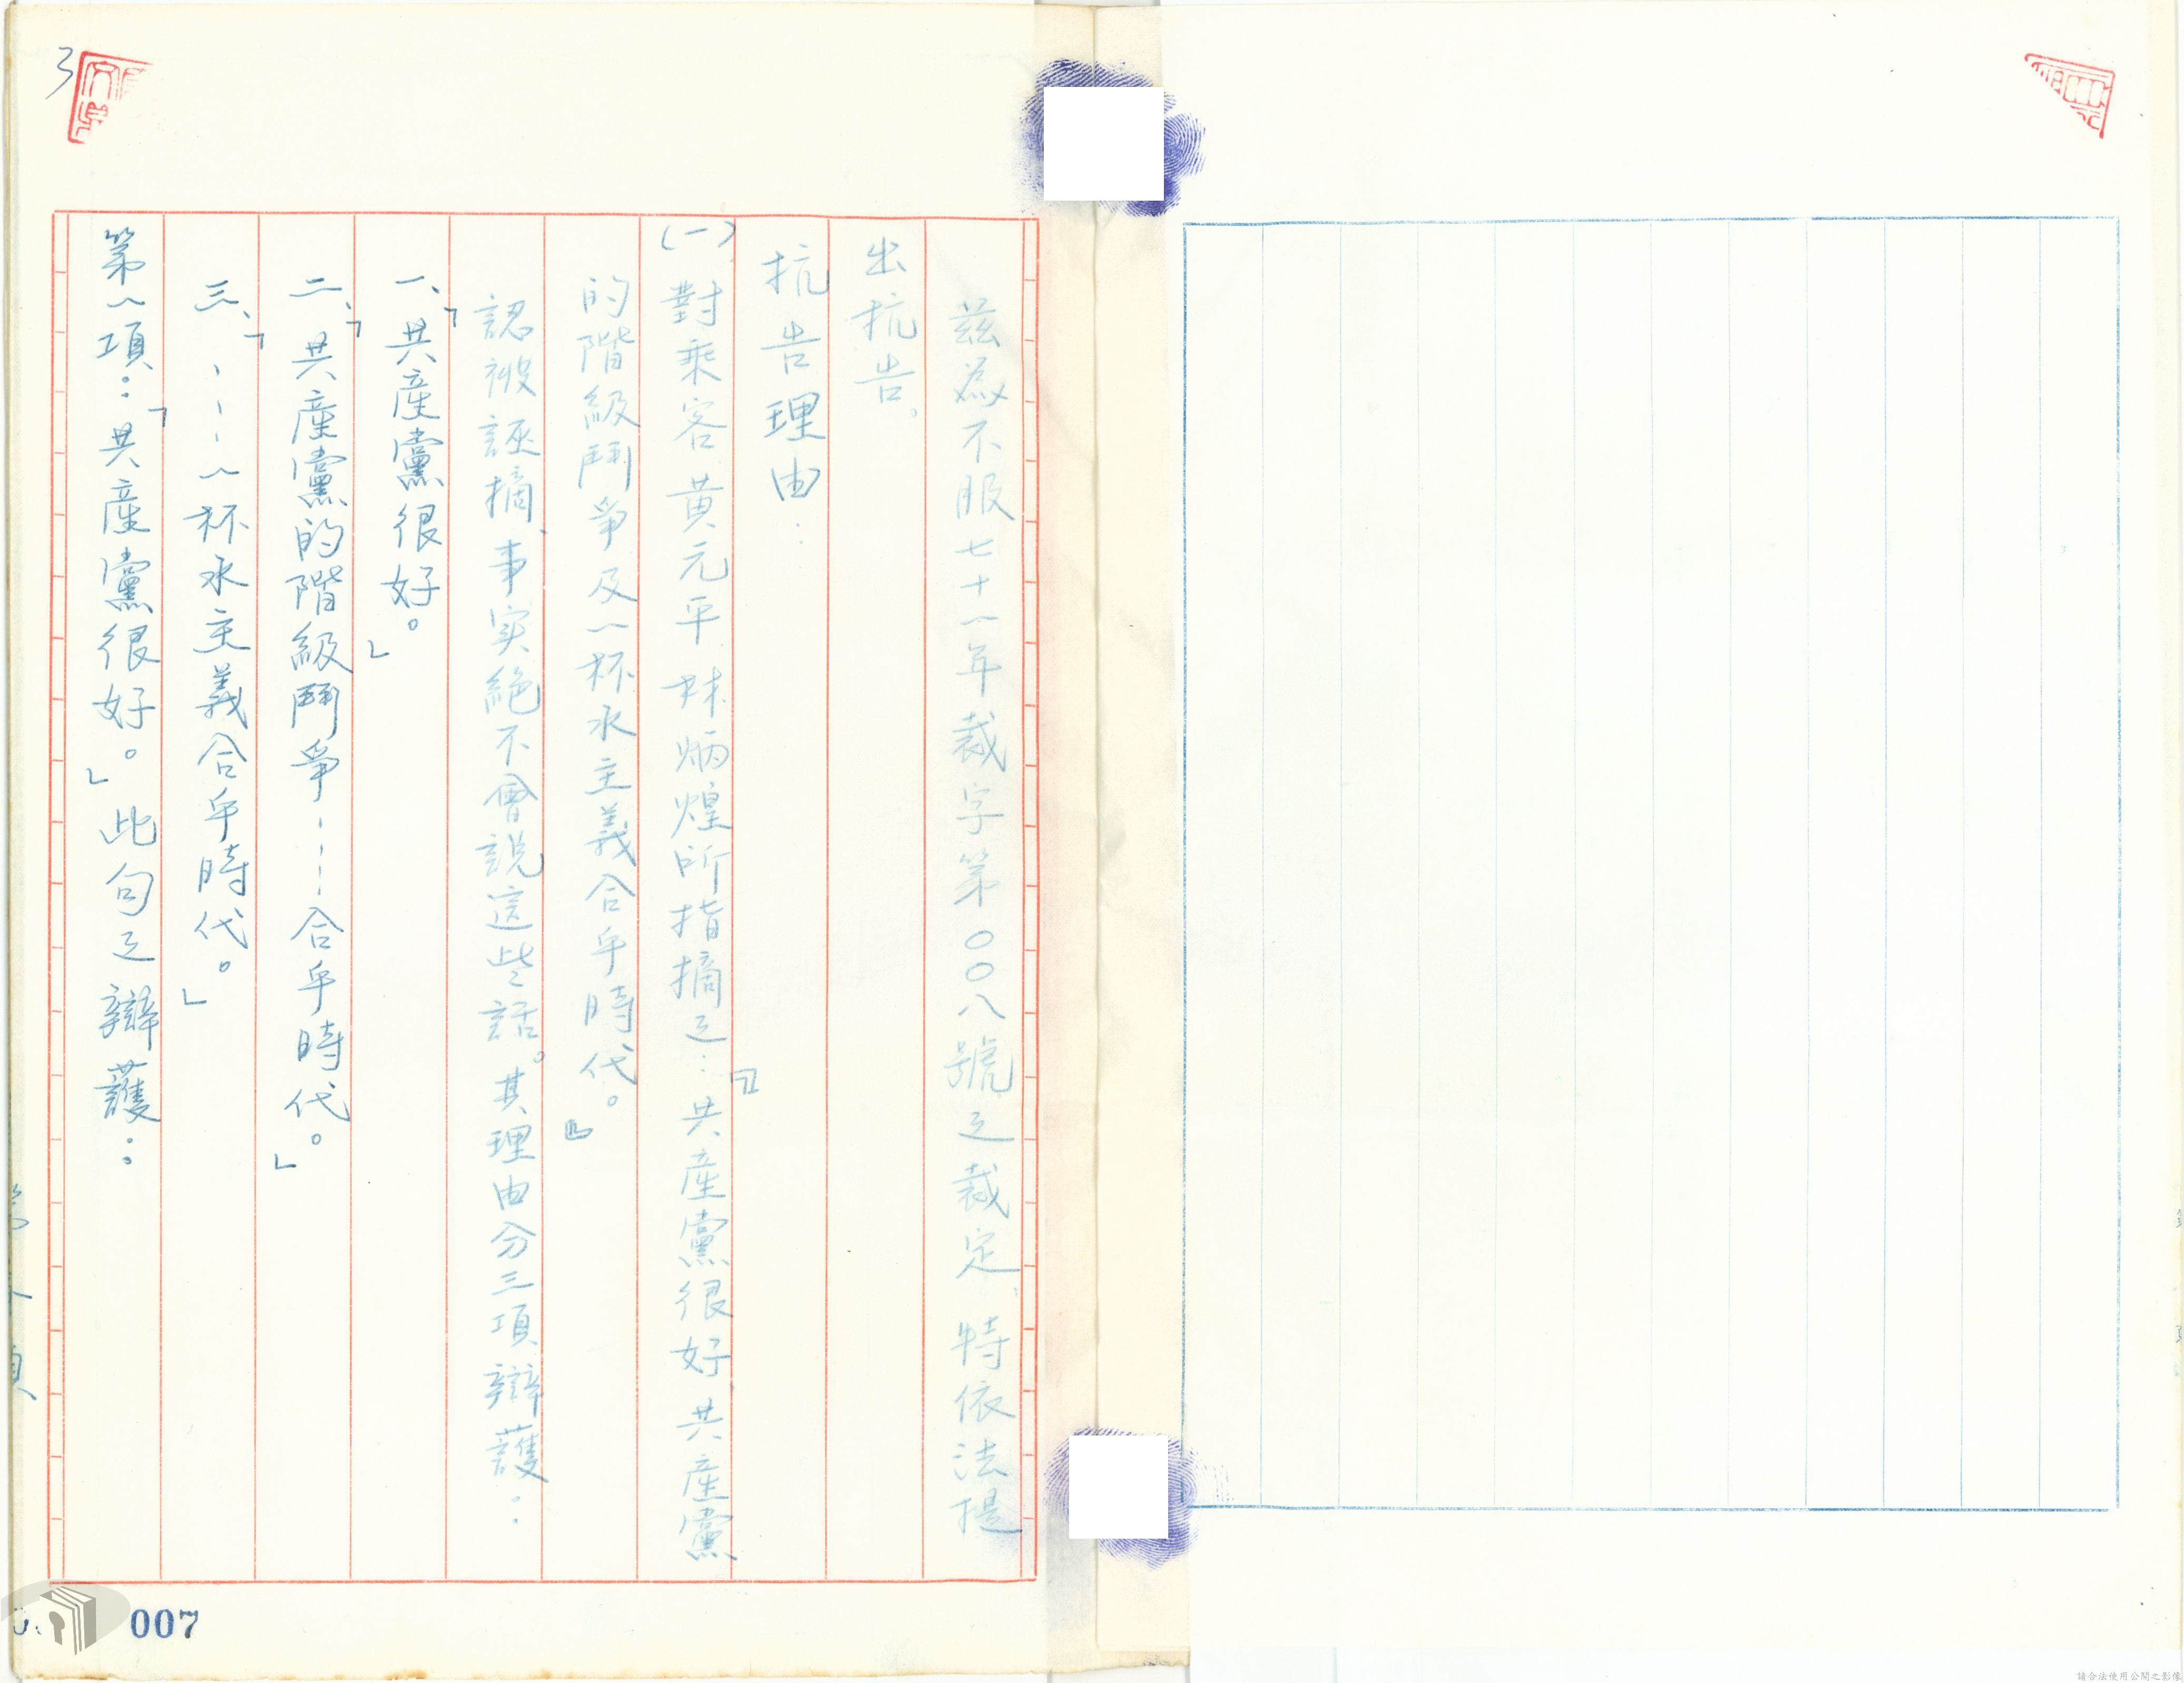 茲為不服七十一年裁字第〇〇八號之裁定、特依法提
出抗告。
抗告理由：
(一)對乘客黃元平、林炳煌所指摘之：『共產黨很好、共產黨
的階級鬥爭及一杯水主義合乎時代。』
認被誣摘、事实絕不會說這些話。其理由分三項辯護：
一、「共產黨很好。」
二、「共產黨的階級鬥爭……合乎時代。」
三、「……一杯水主義合乎時代。」
第一項：「共產黨很好。」此句之辯護：
3
007
請合法使用公開之影像